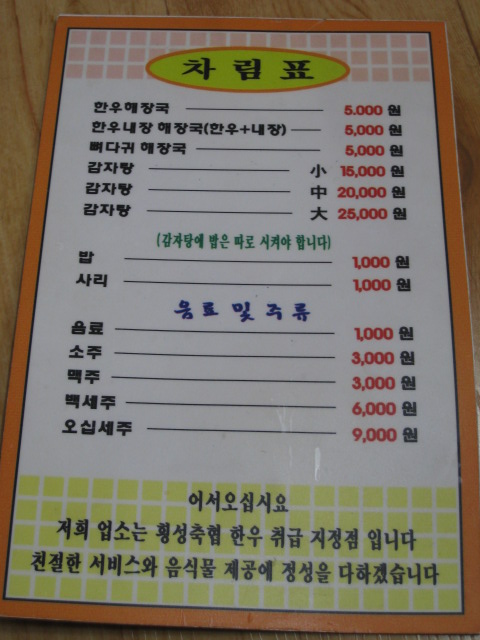 차림표
한우해장국 5.000 원
한우내장 해장국(한우+내장) 5,000 원
뼈다귀 해장국 5,000 원
감자탕 小 15,000 원
감자탕 中 20,000 원
감자탕 大 25,000 원
(감자탕에 밥은 따로 시켜야 합니다)
밥 1,000 원
사리 1,000 원
음료 및 주류
음료 1,000 원
소주 3,000 원
맥주 3,000 원
백세주 6,000 원
오십세주 9,000 원
어서오십시요
저희 업소는 횡성축협 한우 취급 지정점 입니다
친절한 서비스와 음식물 제공에 정성을 다하겠습니다